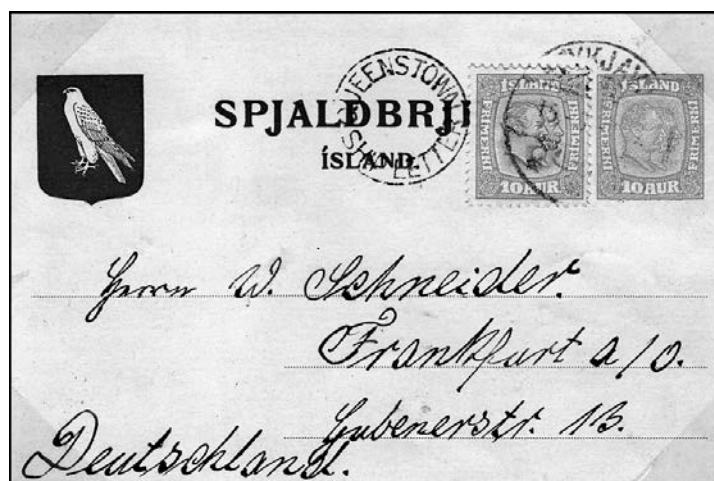 SPJALDBRJE
ÍSLAND.
QUEENSTOWN
SHIP LETTER
ÍSLAND
FRIMERKI FRIMERKI
10 AUR
ÍSLAND
FRIMERKI FRIMERKI
10 AUR
Herrn W. Schneider.
Frankfurt a/O.
Gubenerstr. 13.
Deutschland.